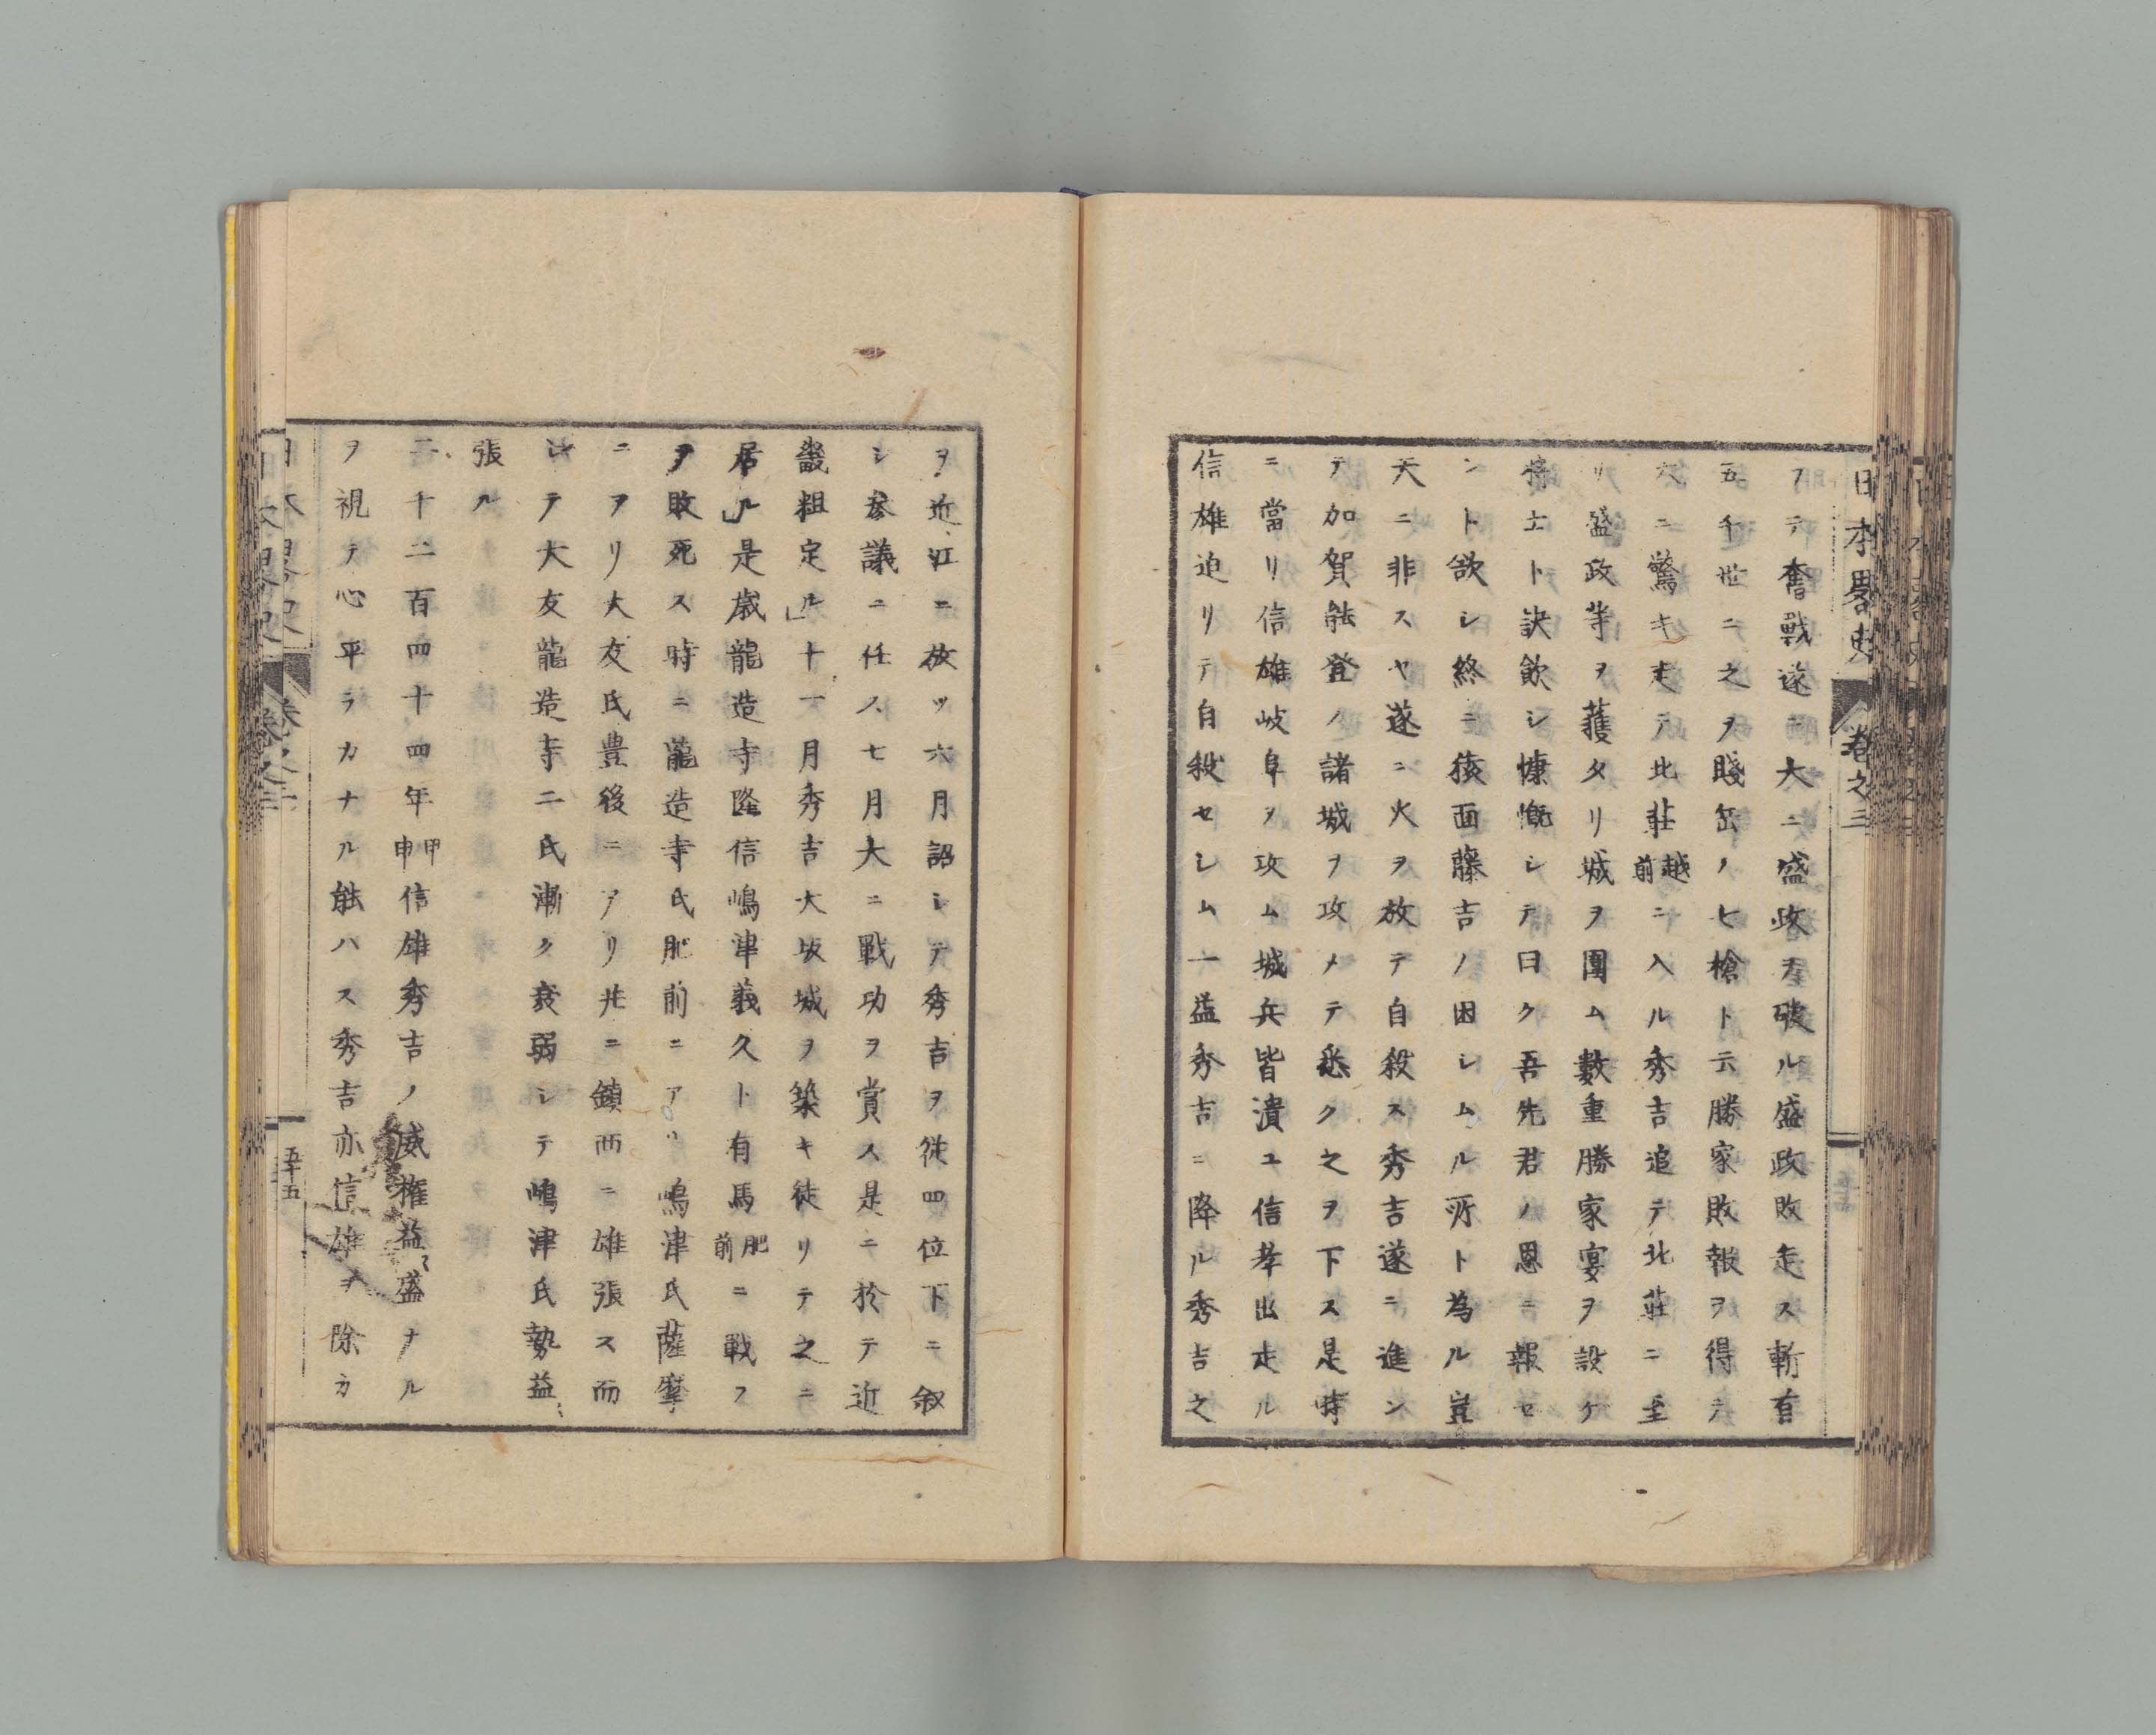 日本畧史 卷之三
フテ奮戰遂ニ大ニ盛政ヲ破ル盛政敗走ス斬首
五千世ニ之ヲ賤岳ノ七槍ト云勝家敗報ヲ得テ
大ニ驚キ走テ北莊越前ニ入ル秀吉追テ北莊ニ至
リ盛政等ヲ獲タリ城ヲ圍ム數重勝家宴ヲ設ケ
將士ト訣飲シ慷慨シテ曰ク吾先君ノ恩ニ報セ
ント欲シ終ニ猿面藤吉ノ困シムル所ト為ル豈
天ニ非スヤ遂ニ火ヲ放テ自殺ス秀吉遂ニ進ン
テ加賀能登ノ諸城ヲ攻メテ悉ク之ヲ下ス是時
ニ當リ信雄岐阜ヲ攻ム城兵皆潰ユ信孝出走ル
信雄迫リテ自殺セシム一益秀吉ニ降ル秀吉之
ヲ近江ニ放ツ六月詔シテ秀吉ヲ從四位下ニ叙
シ參議ニ任ス七月大ニ戰功ヲ賞ス是ニ於テ近
畿粗定ル」十一月秀吉大坂城ヲ築キ徙リテ之ニ
居ル」是歳龍造寺隆信嶋津義久ト有馬肥前ニ戰フ
ヲ敗死ス時ニ龍造寺氏肥前ニアリ嶋津氏薩摩
ニアリ大友氏豊後ニアリ共ニ鎮西ニ雄張ス而
シテ大友龍造寺二氏漸ク衰弱シテ嶋津氏勢益〻
張ル
二千二百四十四年甲申信雄秀吉ノ威權益〻盛ナル
ヲ視テ心平ラカナル能ハス秀吉亦信雄ヲ除カ
日本畧史 卷之三
五十五